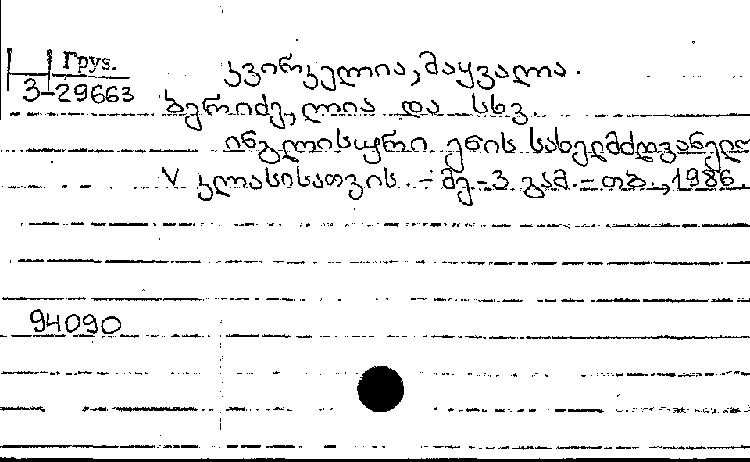 Грys.
3-29663
კვირკველია, მაყვალა.
ბერიძე, ლია და სხვ.
ინგლისური ენის სახელმძღვანელო
V კლასისათვის. - მე-3 გამ. - თბ., 1986.
94090